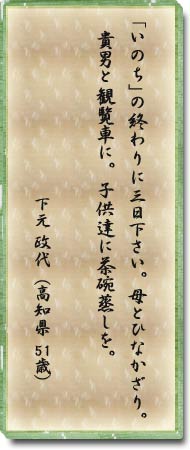 「いのち」の終わりに三日下さい。母とひなかざり。
貴男と観覧車に。子供達に茶碗蒸しを。
下元 政代 (高知県 51歳)